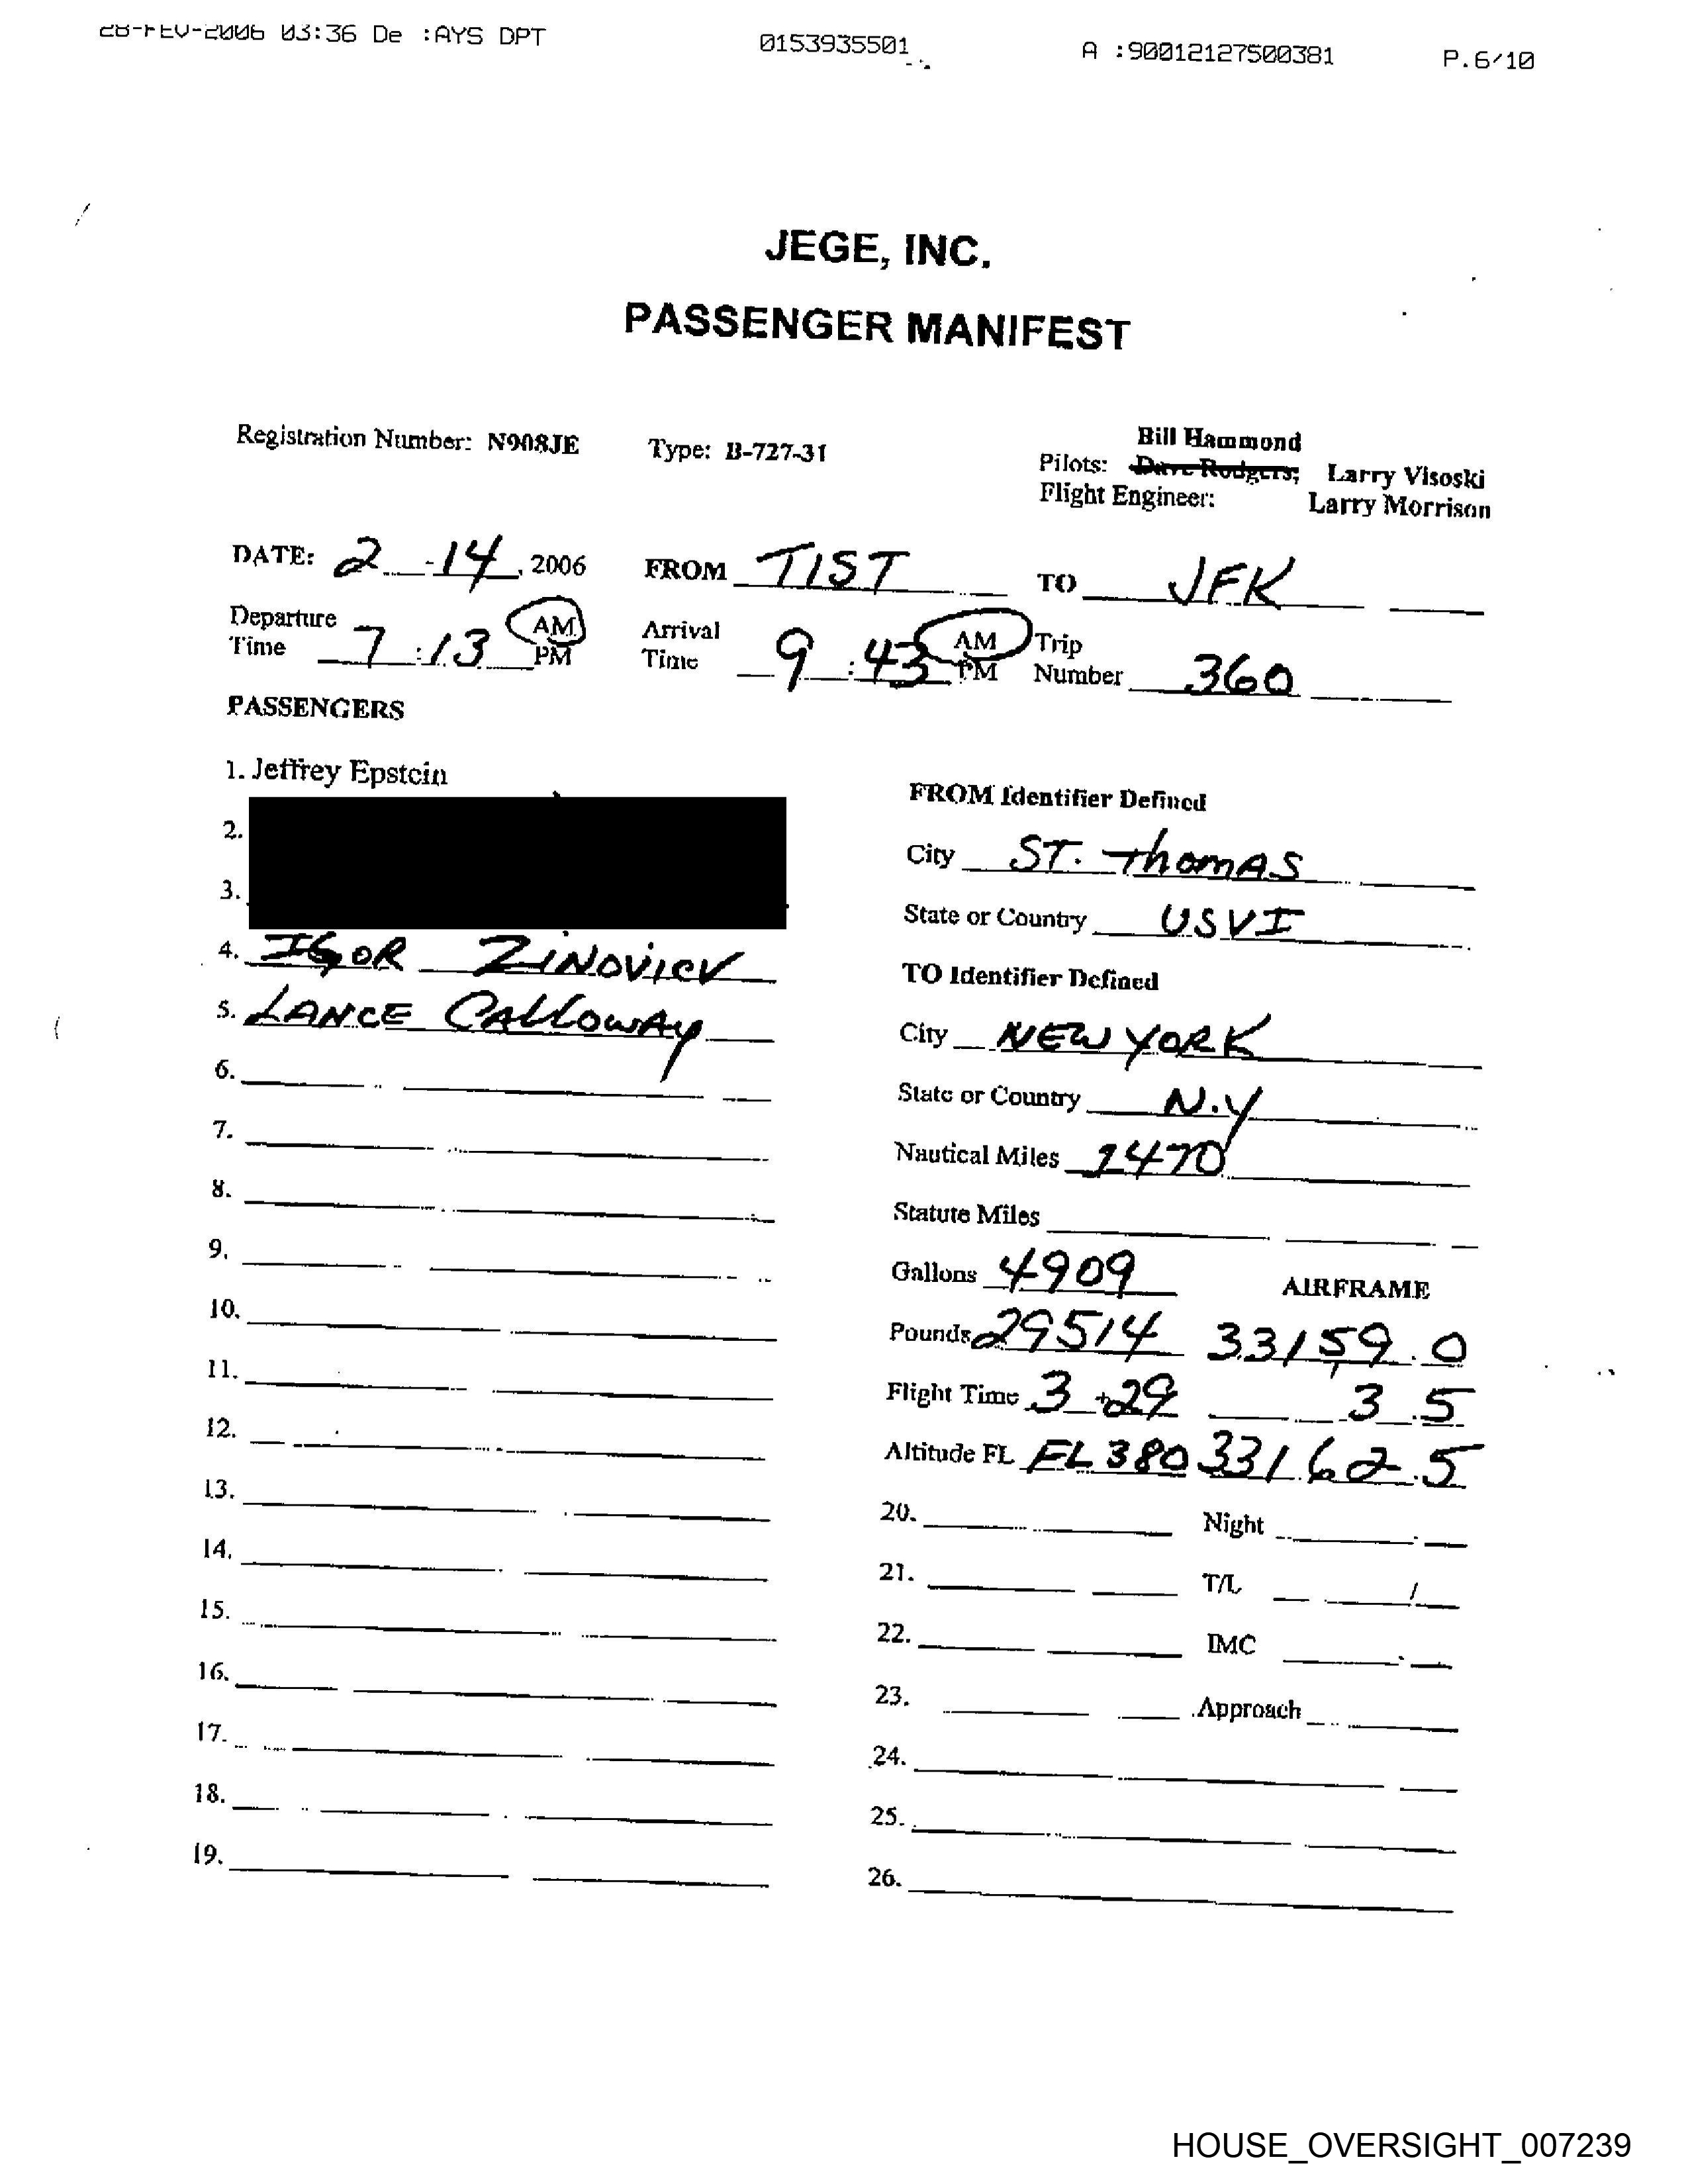 28-FEV-2006 03:36 De :AYS DPT 0153935501 A :90012127500381 P.6/10
JEGE, INC.
PASSENGER MANIFEST
Bill Hammond
Registration Number: N908JE Type: B-727-31 Pilots: Dave Rodgers; Larry Visoski
Flight Engineer: Larry Morrison
DATE: 2 - 14, 2006 FROM TIST TO JFK
Departure Time 7:13 AM PM Arrival Time 9:43 AM PM Trip Number 360
PASSENGERS
1. Jeffrey Epstein
2.
3.
4. IGOR ZINOVIEV
5. LANCE CALLOWAY
6.
7.
8.
9.
10.
11.
12.
13.
14.
15.
16.
17.
18.
19.
FROM Identifier Defined
City ST. Thomas
State or Country USVI
TO Identifier Defined
City NEW YORK
State or Country N.Y
Nautical Miles 1470
Statute Miles
Gallons 4909 AIRFRAME
Pounds 29514 33159.0
Flight Time 3+29 3.5
Altitude FL FL380 33162.5
20. Night
21. T/L /
22. IMC
23. Approach
24.
25.
26.
HOUSE_OVERSIGHT_007239